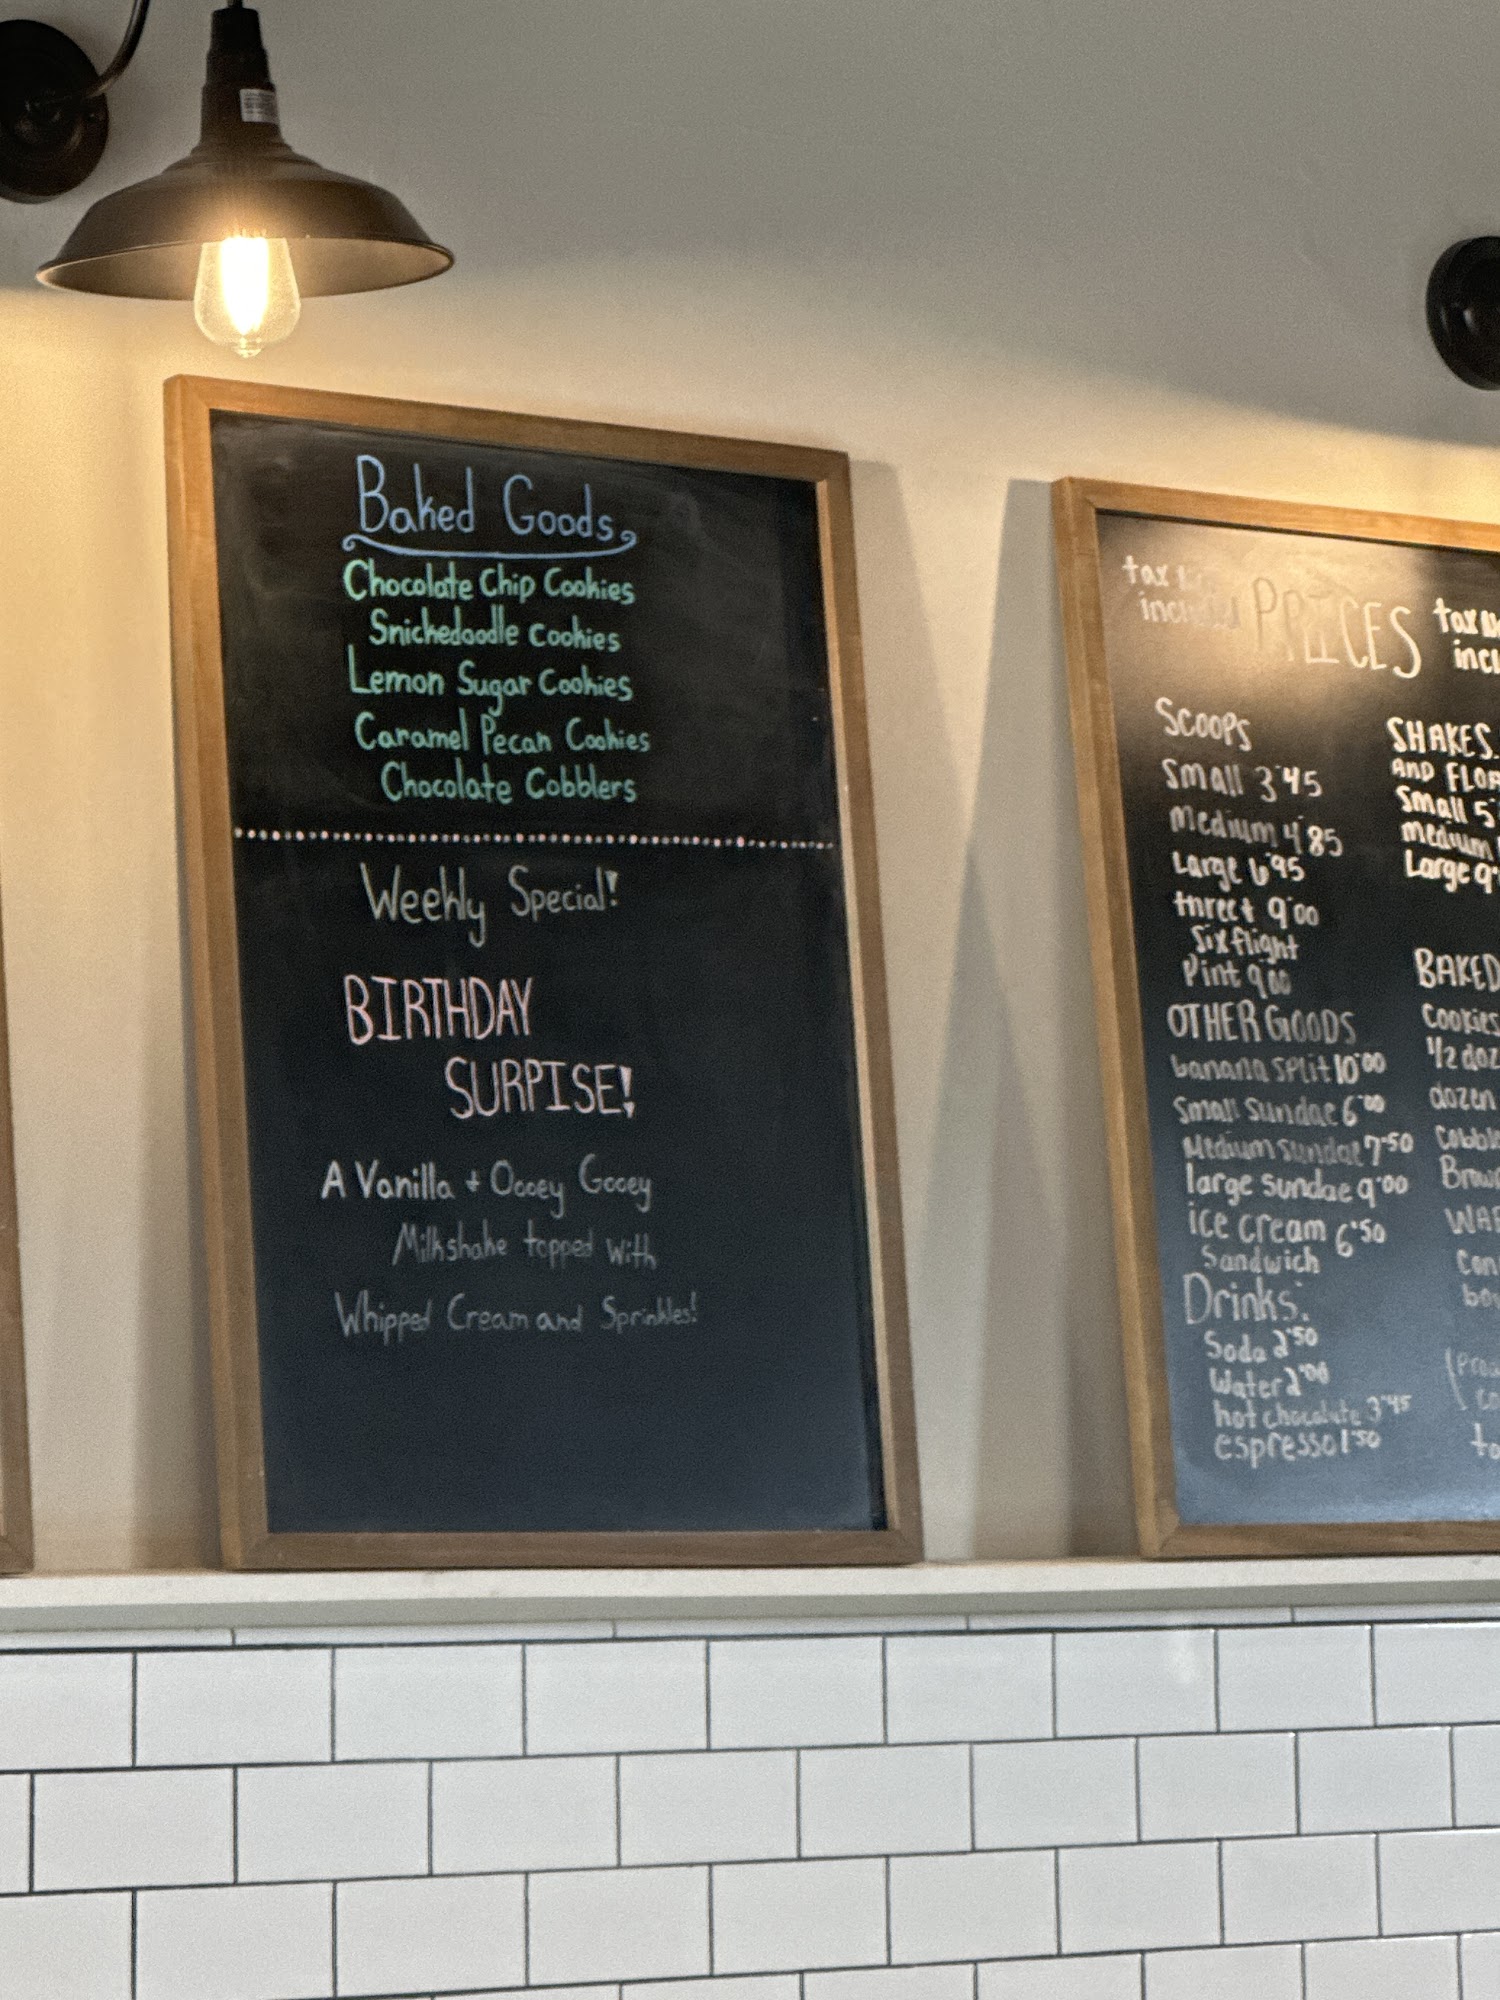 Baked Goods
Chocolate Chip Cookies
Snickedoodle Cookies
Lemon Sugar Cookies
Caramel Pecan Cookies
Chocolate Cobblers
Weekly Special!
BIRTHDAY
SURPISE!
A Vanilla + Oooey Gooey
Milkshake topped with
Whipped Cream and Sprinkles!
tax
PRICES
tax
Scoops
Small 3.45
Medium 4.85
Large 6.95
9.00
Six flight
Pint 9.00
OTHER GOODS
banana split 10.00
Small Sundae 6.00
Medium Sundae 7.50
large sundae 9.00
ice cream 6.50
Sandwich
Drinks:
Soda 2.50
Water 2.00
hot chocolate 3.45
espresso 1.50
SHAKES
AND
Small
medium
Large
BAKED
Cookies
1/2
dozen